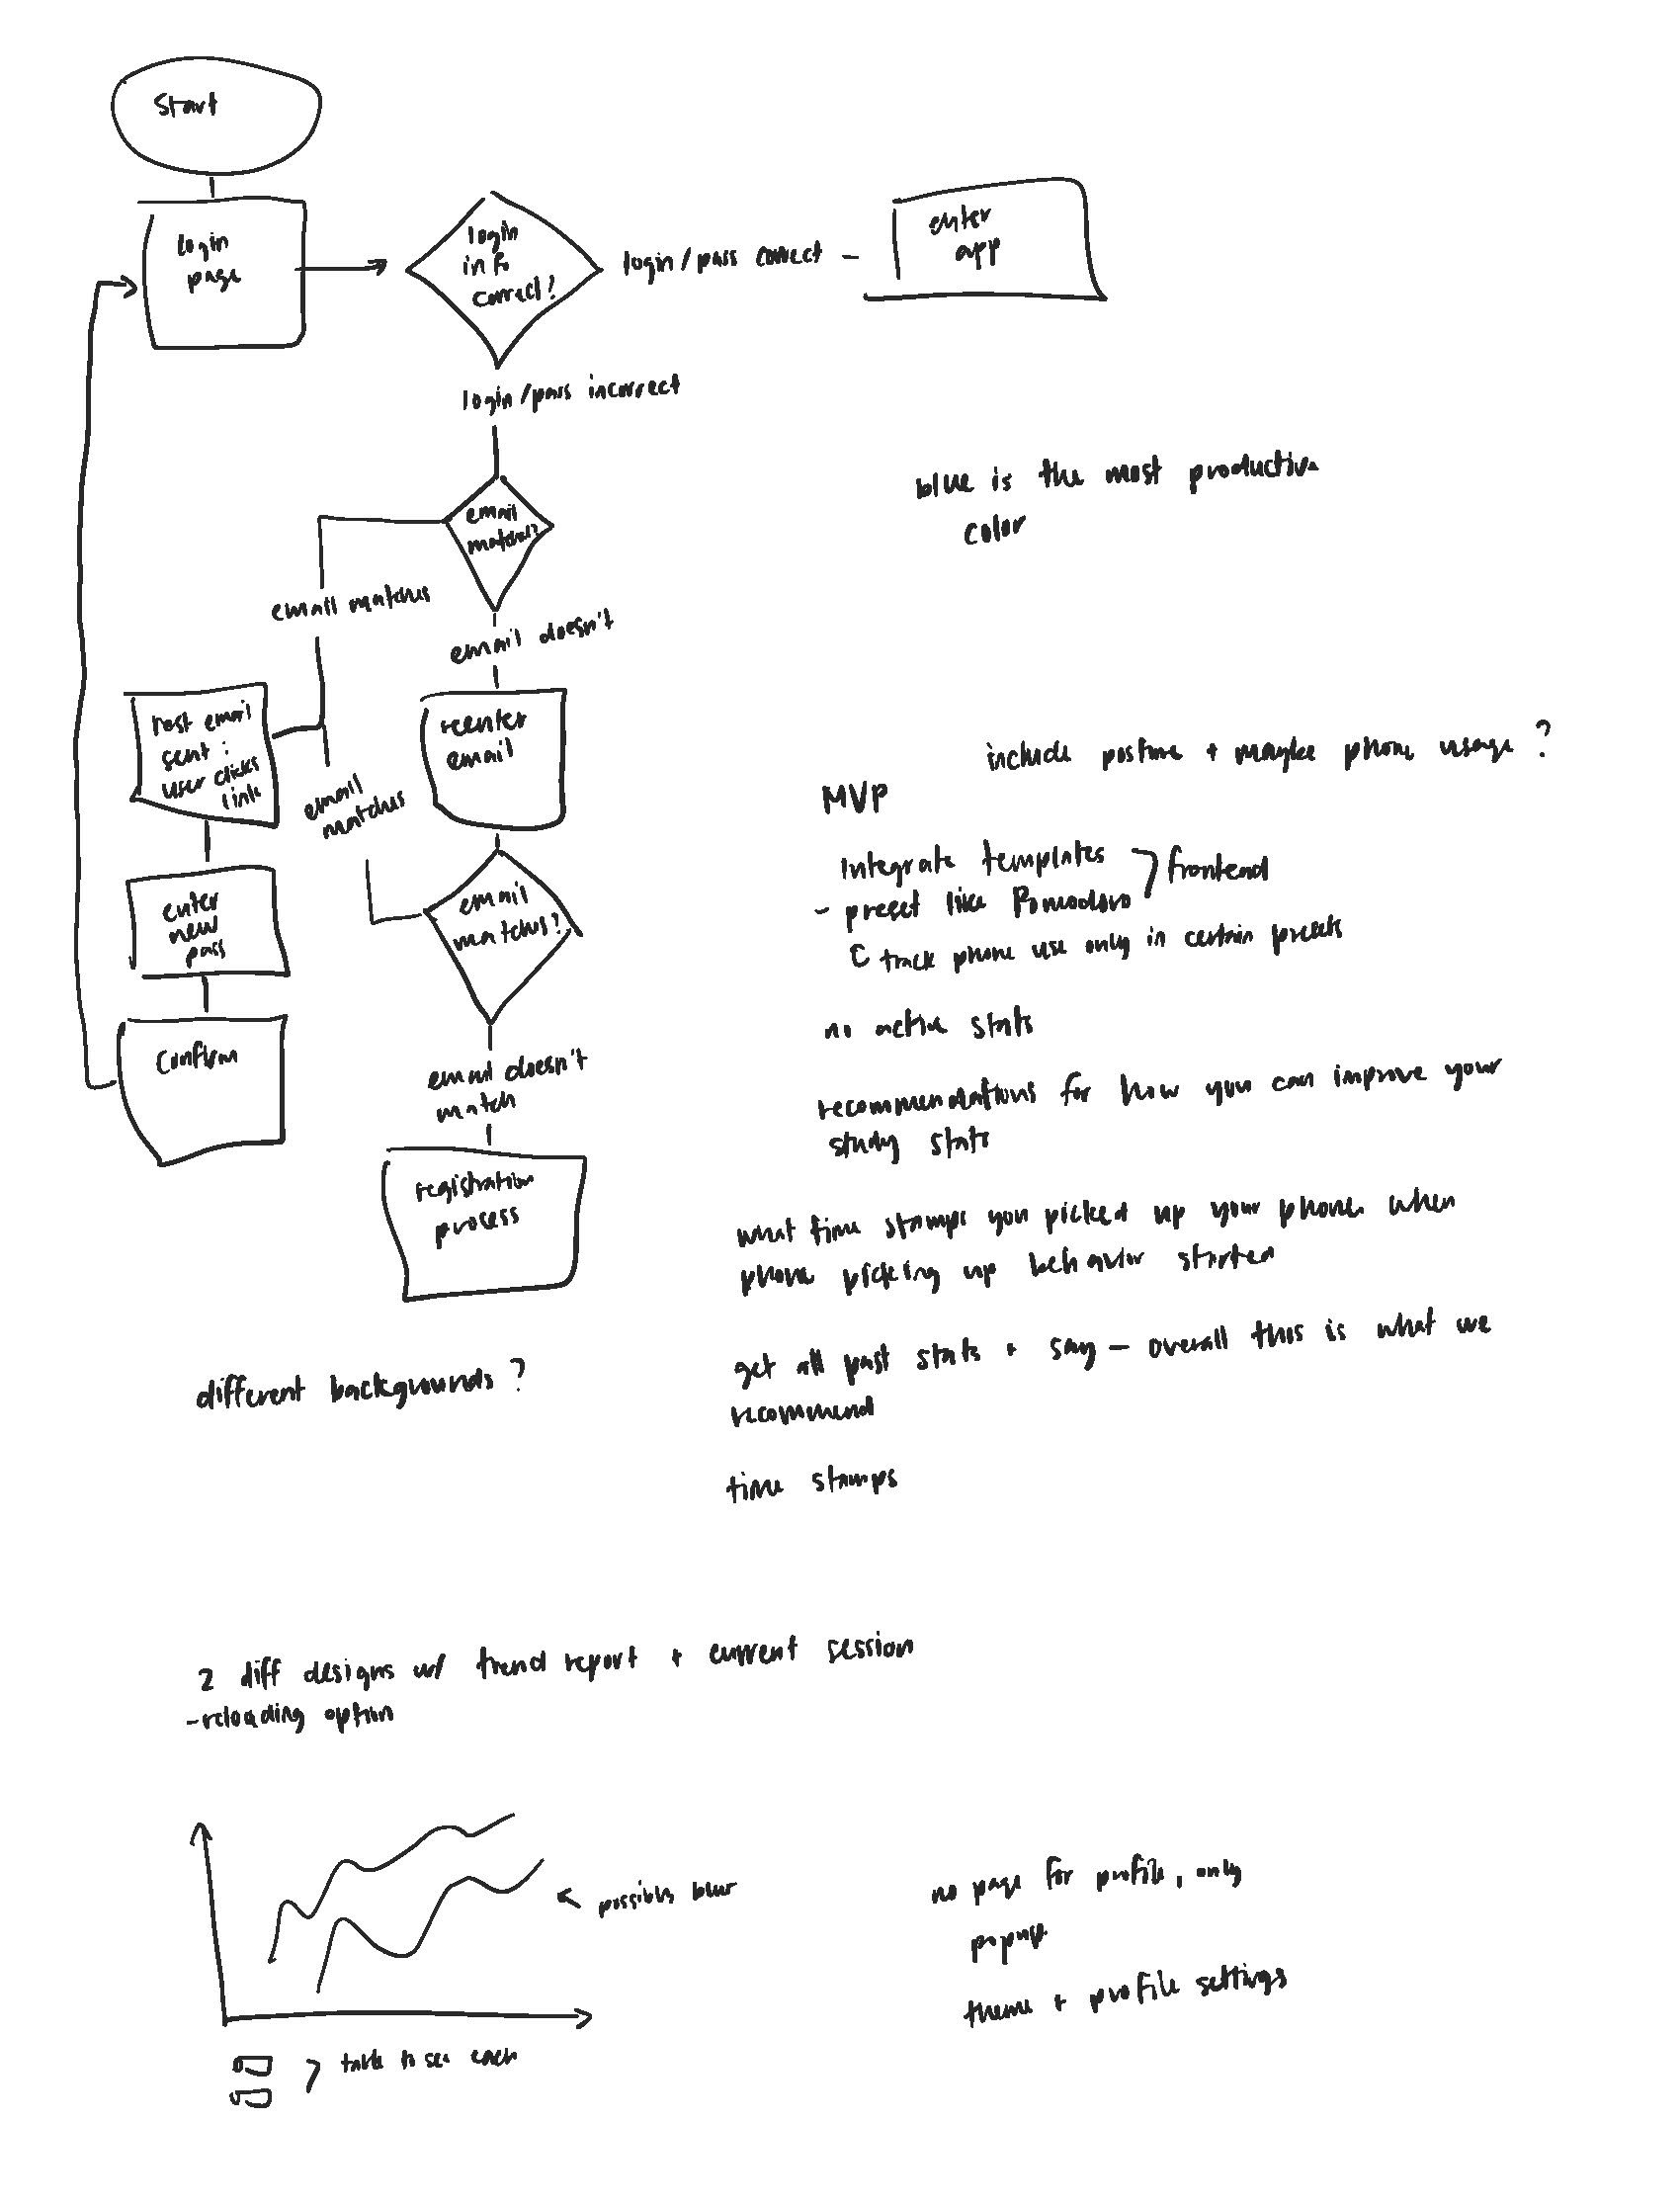 Start
login
page
login
info
correct?
login/pass correct
enter
app
login/pass incorrect
email
matches?
email matches
email doesn't
email sent:
user clicks
link
reenter
email
email
matches
enter
new
pass
email
matches?
confirm
email doesn't
match
registration
process
different backgrounds?
blue is the most productive
color
include posture + maybe phone usage?
MVP
Integrate templates
- preset like Pomodoro
frontend
track phone use only in certain presets
no active stats
recommendations for how you can improve your
study stats
what time stamps you picked up your phone when
phone picking up behavior started
get all past stats + say - overall this is what we
recommend
time stamps
2 diff designs w/ trend report + current session
-reloading option
possible blur
table to see each
no page for profile, only
popup
theme + profile settings